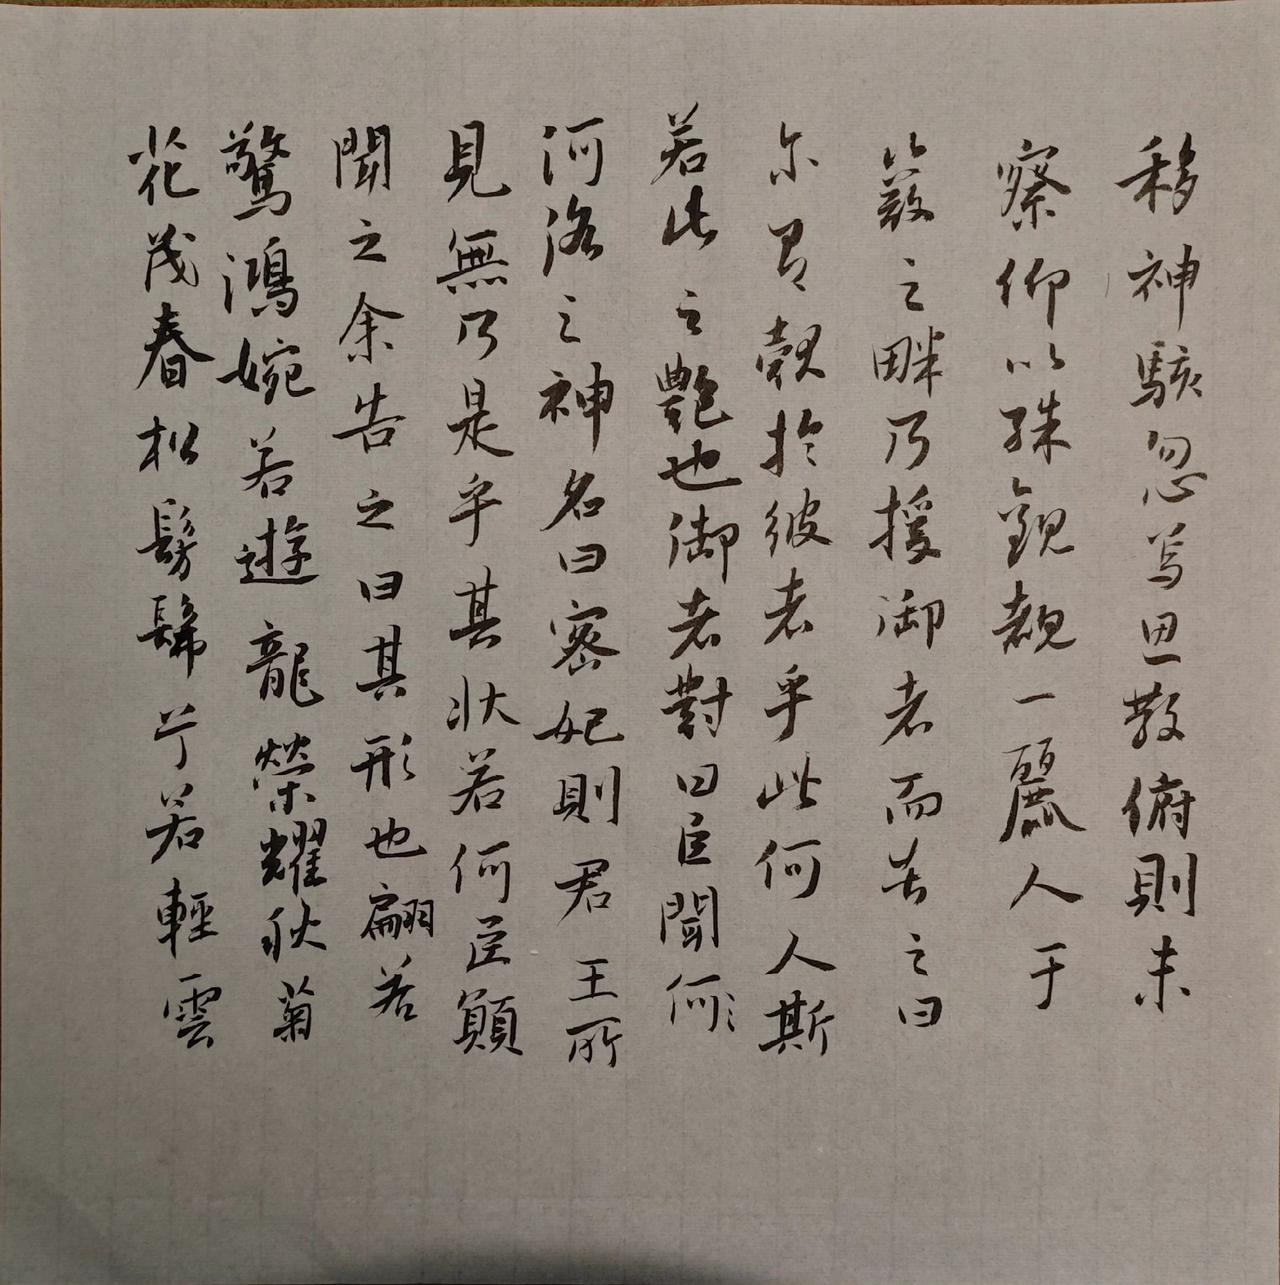 移神駭忽焉思散俯則未
察仰以殊觀覩一麗人于
巖之畔乃援御者而告之曰
尔有覿於彼者乎此何人斯
若此之艷也御者對曰臣聞何:
河洛之神名曰宓妃則君王所
見無乃是乎其狀若何臣願
聞之余告之曰其形也翩若
驚鴻婉若遊龍榮耀秋菊
花茂春松髣髴兮若輕雲